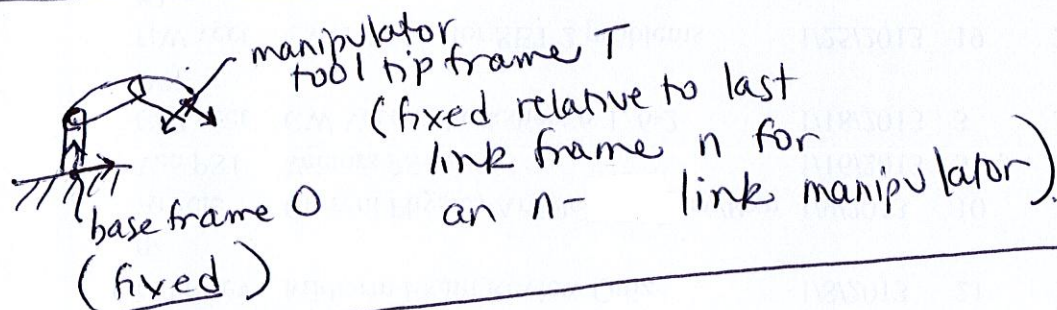 manipulator
tool tip frame T
(fixed relative to last
link frame n for
an n- link manipulator).
base frame O
(fixed)